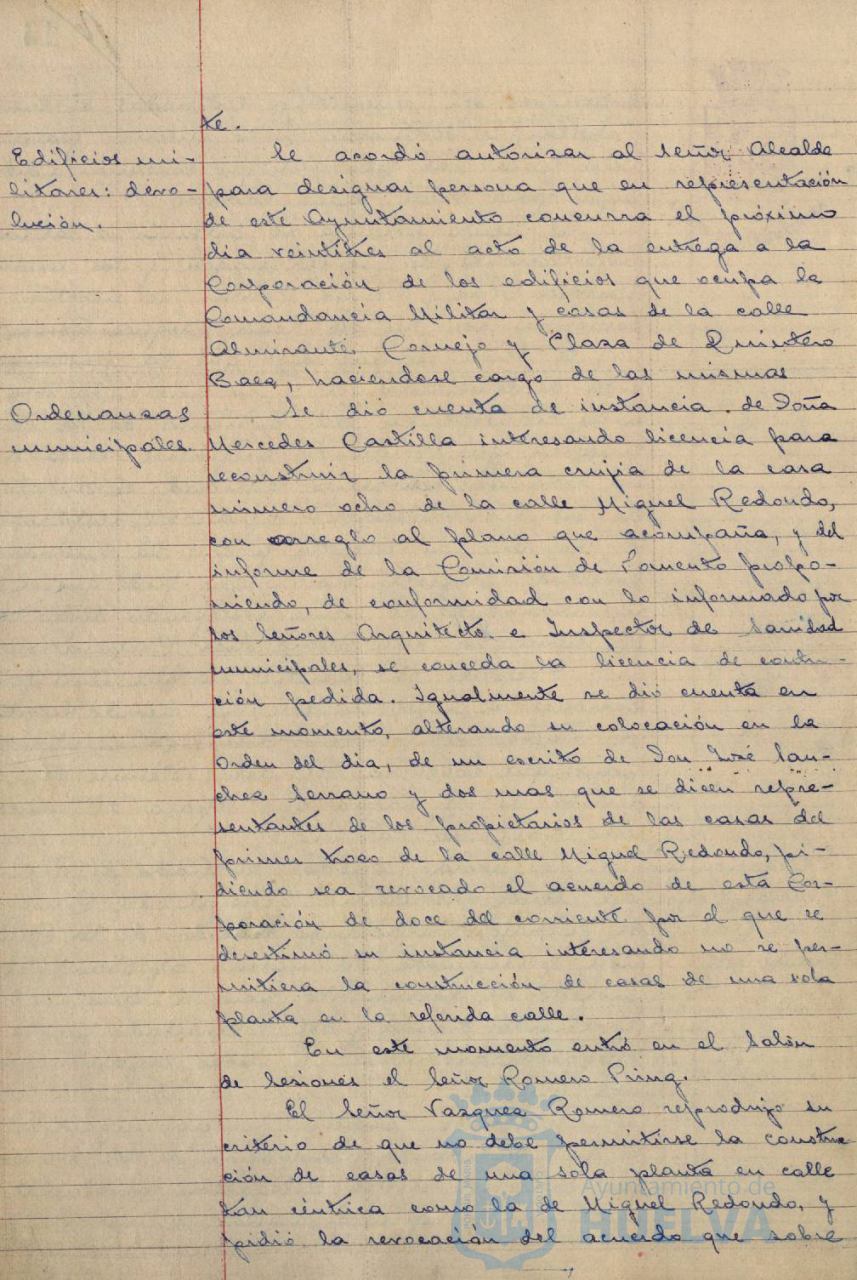 te.
Edificios mi-
litares: devo-
lución.
Se acordó autorizar al Señor Alcalde
para designar persona que en representación
de este Ayuntamiento concurra el próximo
dia veintitres al acto de la entrega a la
Corporación de los edificios que ocupa la
Comandancia Militar y casas de la calle
Almirante Cornejo y Plaza de Quintero
Baez, haciendose cargo de las mismas
Ordenanzas
municipales.
Se dió cuenta de instancia de Doña
Mercedes Castilla interesando licencia para
reconstruir la primera crujia de la casa
número ocho de la calle Miguel Redondo,
con arreglo al plano que acompaña, y del
informe de la Comisión de Fomento propo-
niendo, de conformidad con lo informado por
los Señores Arquitecto e Inspector de Sanidad
municipales, se conceda la licencia de contru-
ción pedida. Igualmente se dió cuenta en
este momento, alterando su colocación en la
Orden del dia, de un escrito de Don José San-
chez Serrano y dos mas que se dicen repre-
sentantes de los propietarios de las casas del
primer trozo de la calle Miguel Redondo, pi-
diendo sea revocado el acuerdo de esta Cor-
poración de doce del corriente por el que se
desestimó su instancia interesando no se per-
mitiera la construcción de casas de una sola
planta en la referida calle.
En este momento entró en el Salón
de Sesiones el Señor Romero Pring.
El Señor Vazquez Romero reprodujo su
criterio de que no debe permitirse la construc
ción de casas de una sola planta en calle
tan céntrica como la de Miguel Redondo, y
pidió la revocación del acuerdo que sobre
Ayuntamiento de
HUELVA